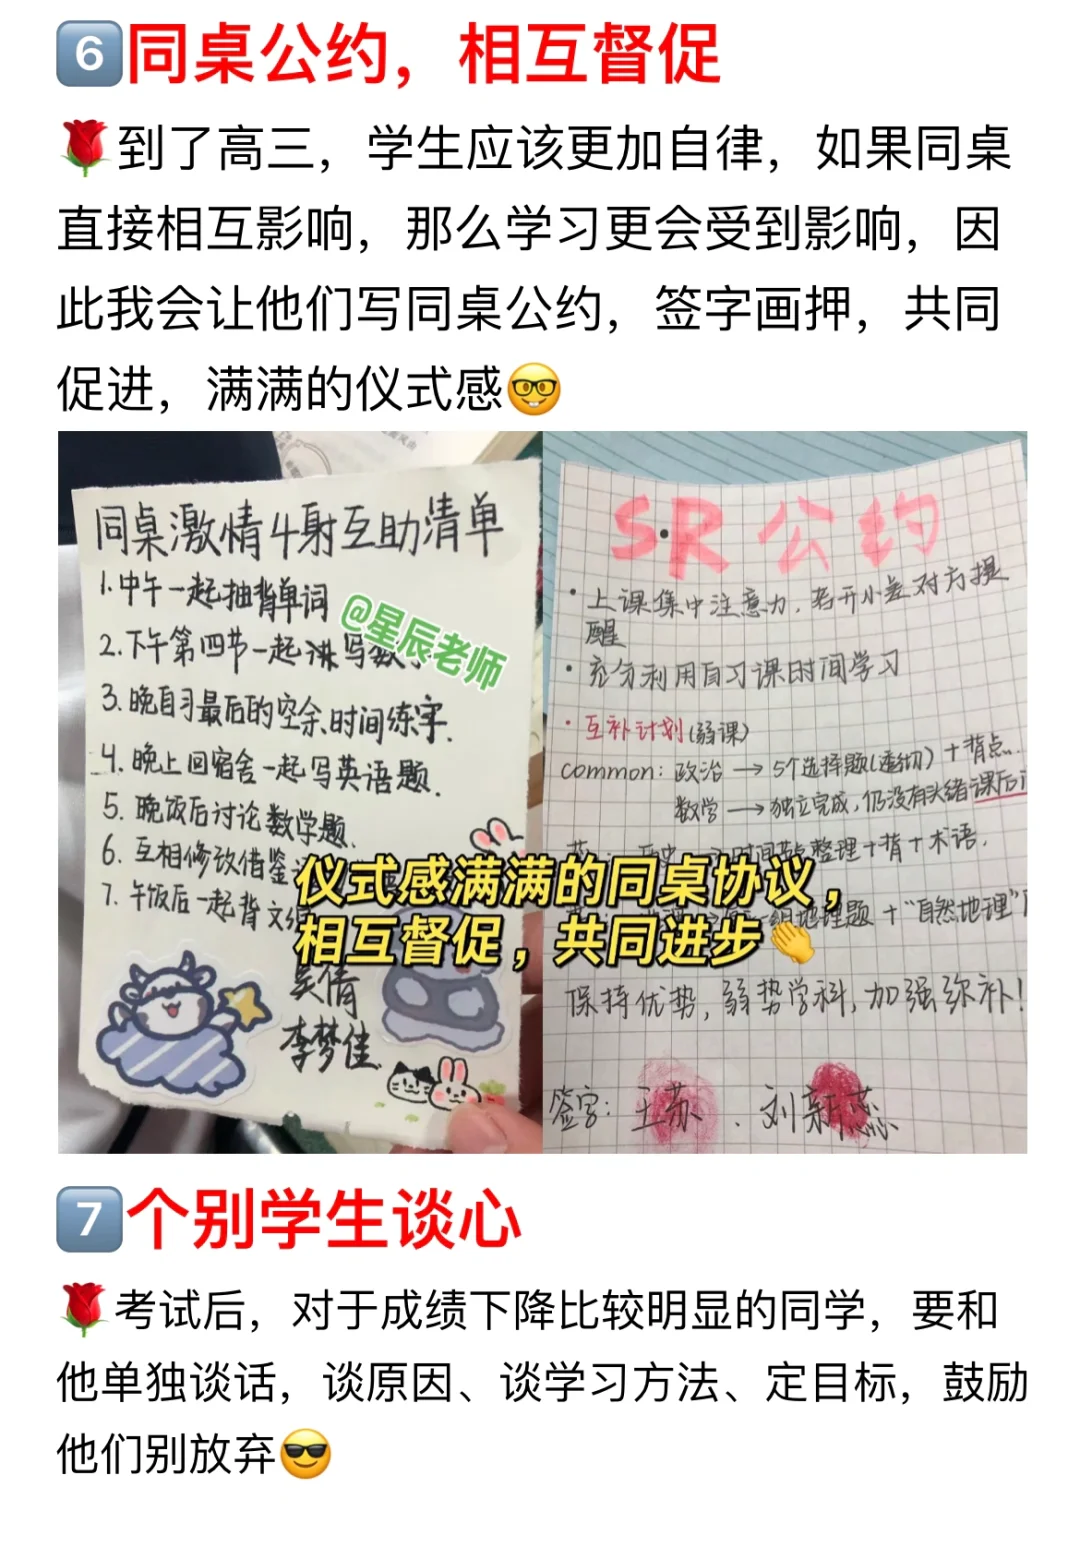 6 同桌公约，相互督促
🌹到了高三，学生应该更加自律，如果同桌
直接相互影响，那么学习更会受到影响，因
此我会让他们写同桌公约，签字画押，共同
促进，满满的仪式感🤓
同桌激情4射互助清单
1.中午一起抽背单词
2.下午第四节一起 写数
3.晚自习最后的空余时间练字.
4.晚上回宿舍一起写英语题.
5.晚饭后讨论数学题.
6.互相修改借鉴
7.午饭后一起背文综
吴倩
李梦佳
@星辰老师
S·R 公约
·上课集中注意力，若开小差对方提
醒
·充分利用自习课时间学习
·互补计划(弱课)
common: 政治 → 5个选择题(透彻) + 背点
数学 → 独立完成,仍没有头绪课后
时间 整理+背+术语.
组地理题 + “自然地理”
保持优势, 弱势学科, 加强弥补!
签字: 王苏 . 刘新蕊
仪式感满满的同桌协议，
相互督促，共同进步👏
7 个别学生谈心
🌹考试后，对于成绩下降比较明显的同学，要和
他单独谈话，谈原因、谈学习方法、定目标，鼓励
他们别放弃😎